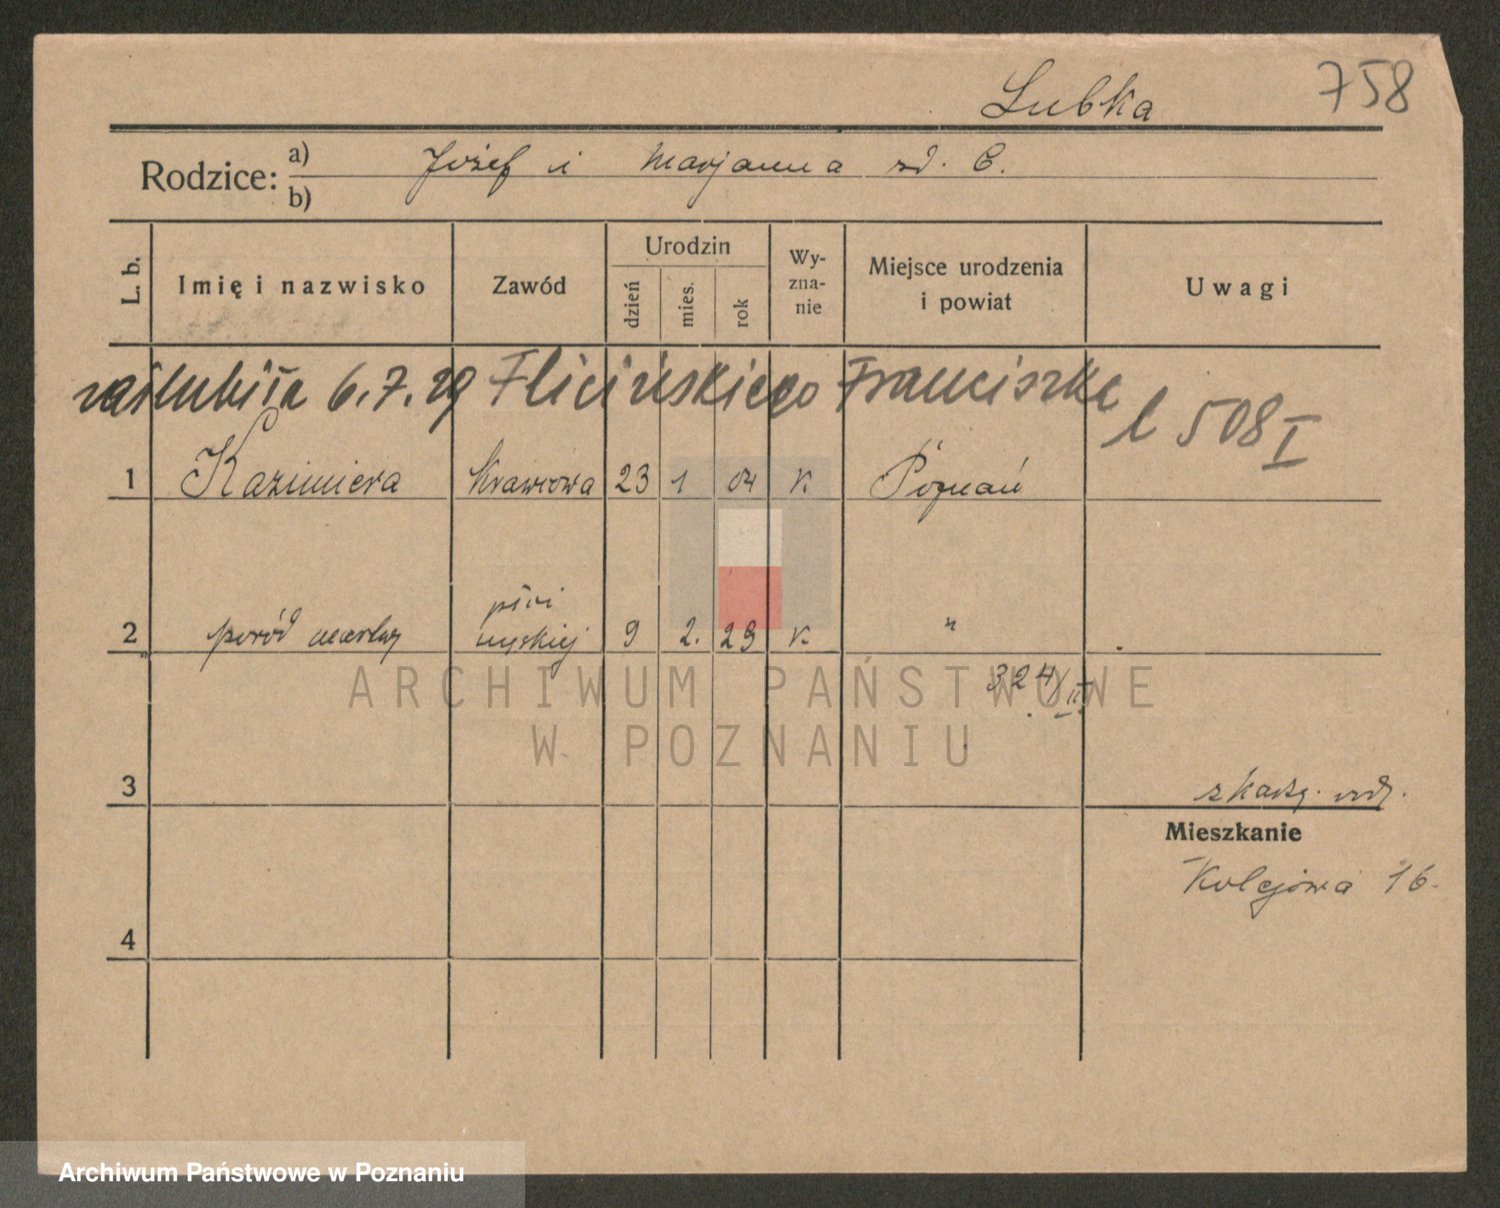 Lubka 758
Rodzice: a) Józef i Marjanna zd. C.
b)
L. b. Imię i nazwisko Zawód Urodzin dzień mies. rok Wy-zna-nie Miejsce urodzenia i powiat Uwagi
zaślubiła 6.7.29 Flicińskiego Franciszka l 508 I
1 Kazimiera Krawcowa 23 1 04 k. Poznań
2 poród martwy płci męskiej 9 2. 29 k. "
324/II
ARCHIWUM PAŃSTWOWE
W POZNANIU
3
Mieszkanie
Kolejowa 16.
4
Archiwum Państwowe w Poznaniu